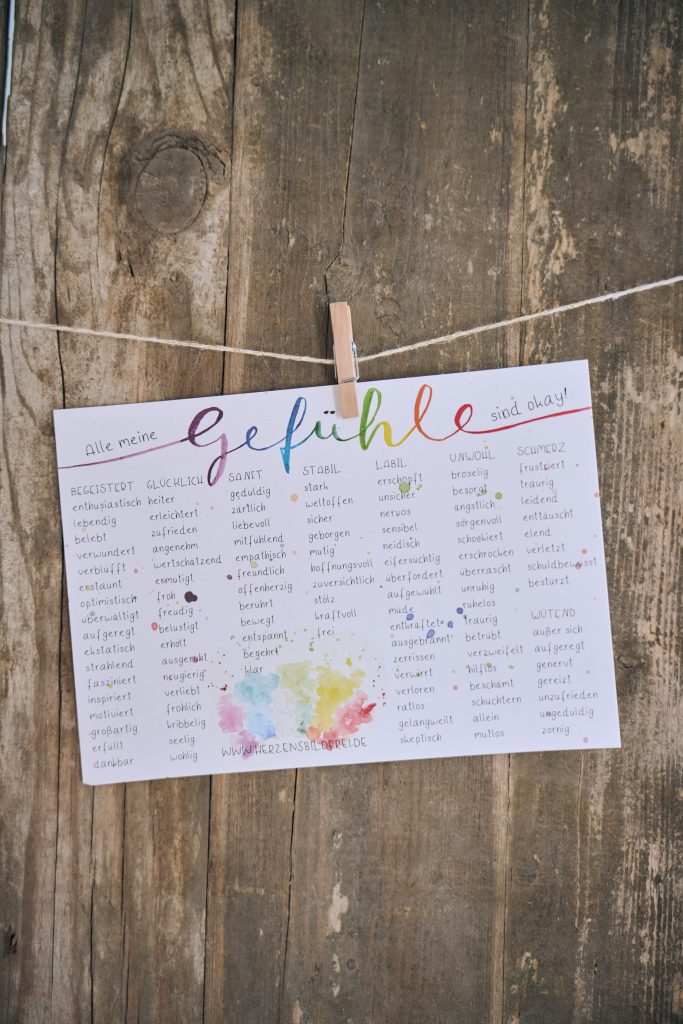 Alle meine Gefühle sind okay!
BEGEISTERT
enthusiastisch
lebendig
belebt
verwundert
verblüfft
erstaunt
optimistisch
überwältigt
aufgeregt
ekstatisch
strahlend
fasziniert
inspiriert
motiviert
großartig
erfüllt
dankbar
GLÜCKLICH
heiter
erleichtert
zufrieden
angenehm
wertschätzend
esmutigt
froh
freudig
belustigt
erholt
ausgeruht
neugierig
verliebt
fröhlich
kribbelig
seelig
wohlig
SANFT
geduldig
zärtlich
liebevoll
mitfühlend
empathisch
freundlich
offenherzig
berührt
bewegt
entspannt
begehrt
klar
STABIL
stark
weltoffen
sicher
geborgen
mutig
hoffnungsvoll
zuversichtlich
stolz
kraftvoll
frei
LABIL
erschöpft
unsicher
nervös
sensibel
neidisch
eifersüchtig
überfordert
aufgewühlt
müde
entkräftet
ausgebrannt
zerrissen
verwirrt
verloren
ratlos
gelangweilt
skeptisch
UNWOHL
bröselig
besorgt
ängstlich
sorgenvoll
schockiert
erschrocken
überrascht
unruhig
ruhelos
traurig
betrübt
verzweifelt
hilflos
beschämt
schüchtern
allein
mutlos
SCHMERZ
frustriert
traurig
leidend
enttäuscht
elend
verletzt
schuldbewusst
bestürzt
WÜTEND
außer sich
aufgeregt
genervt
gereizt
unzufrieden
ungeduldig
zornig
WWW.HERZENSBILDEREI.DE